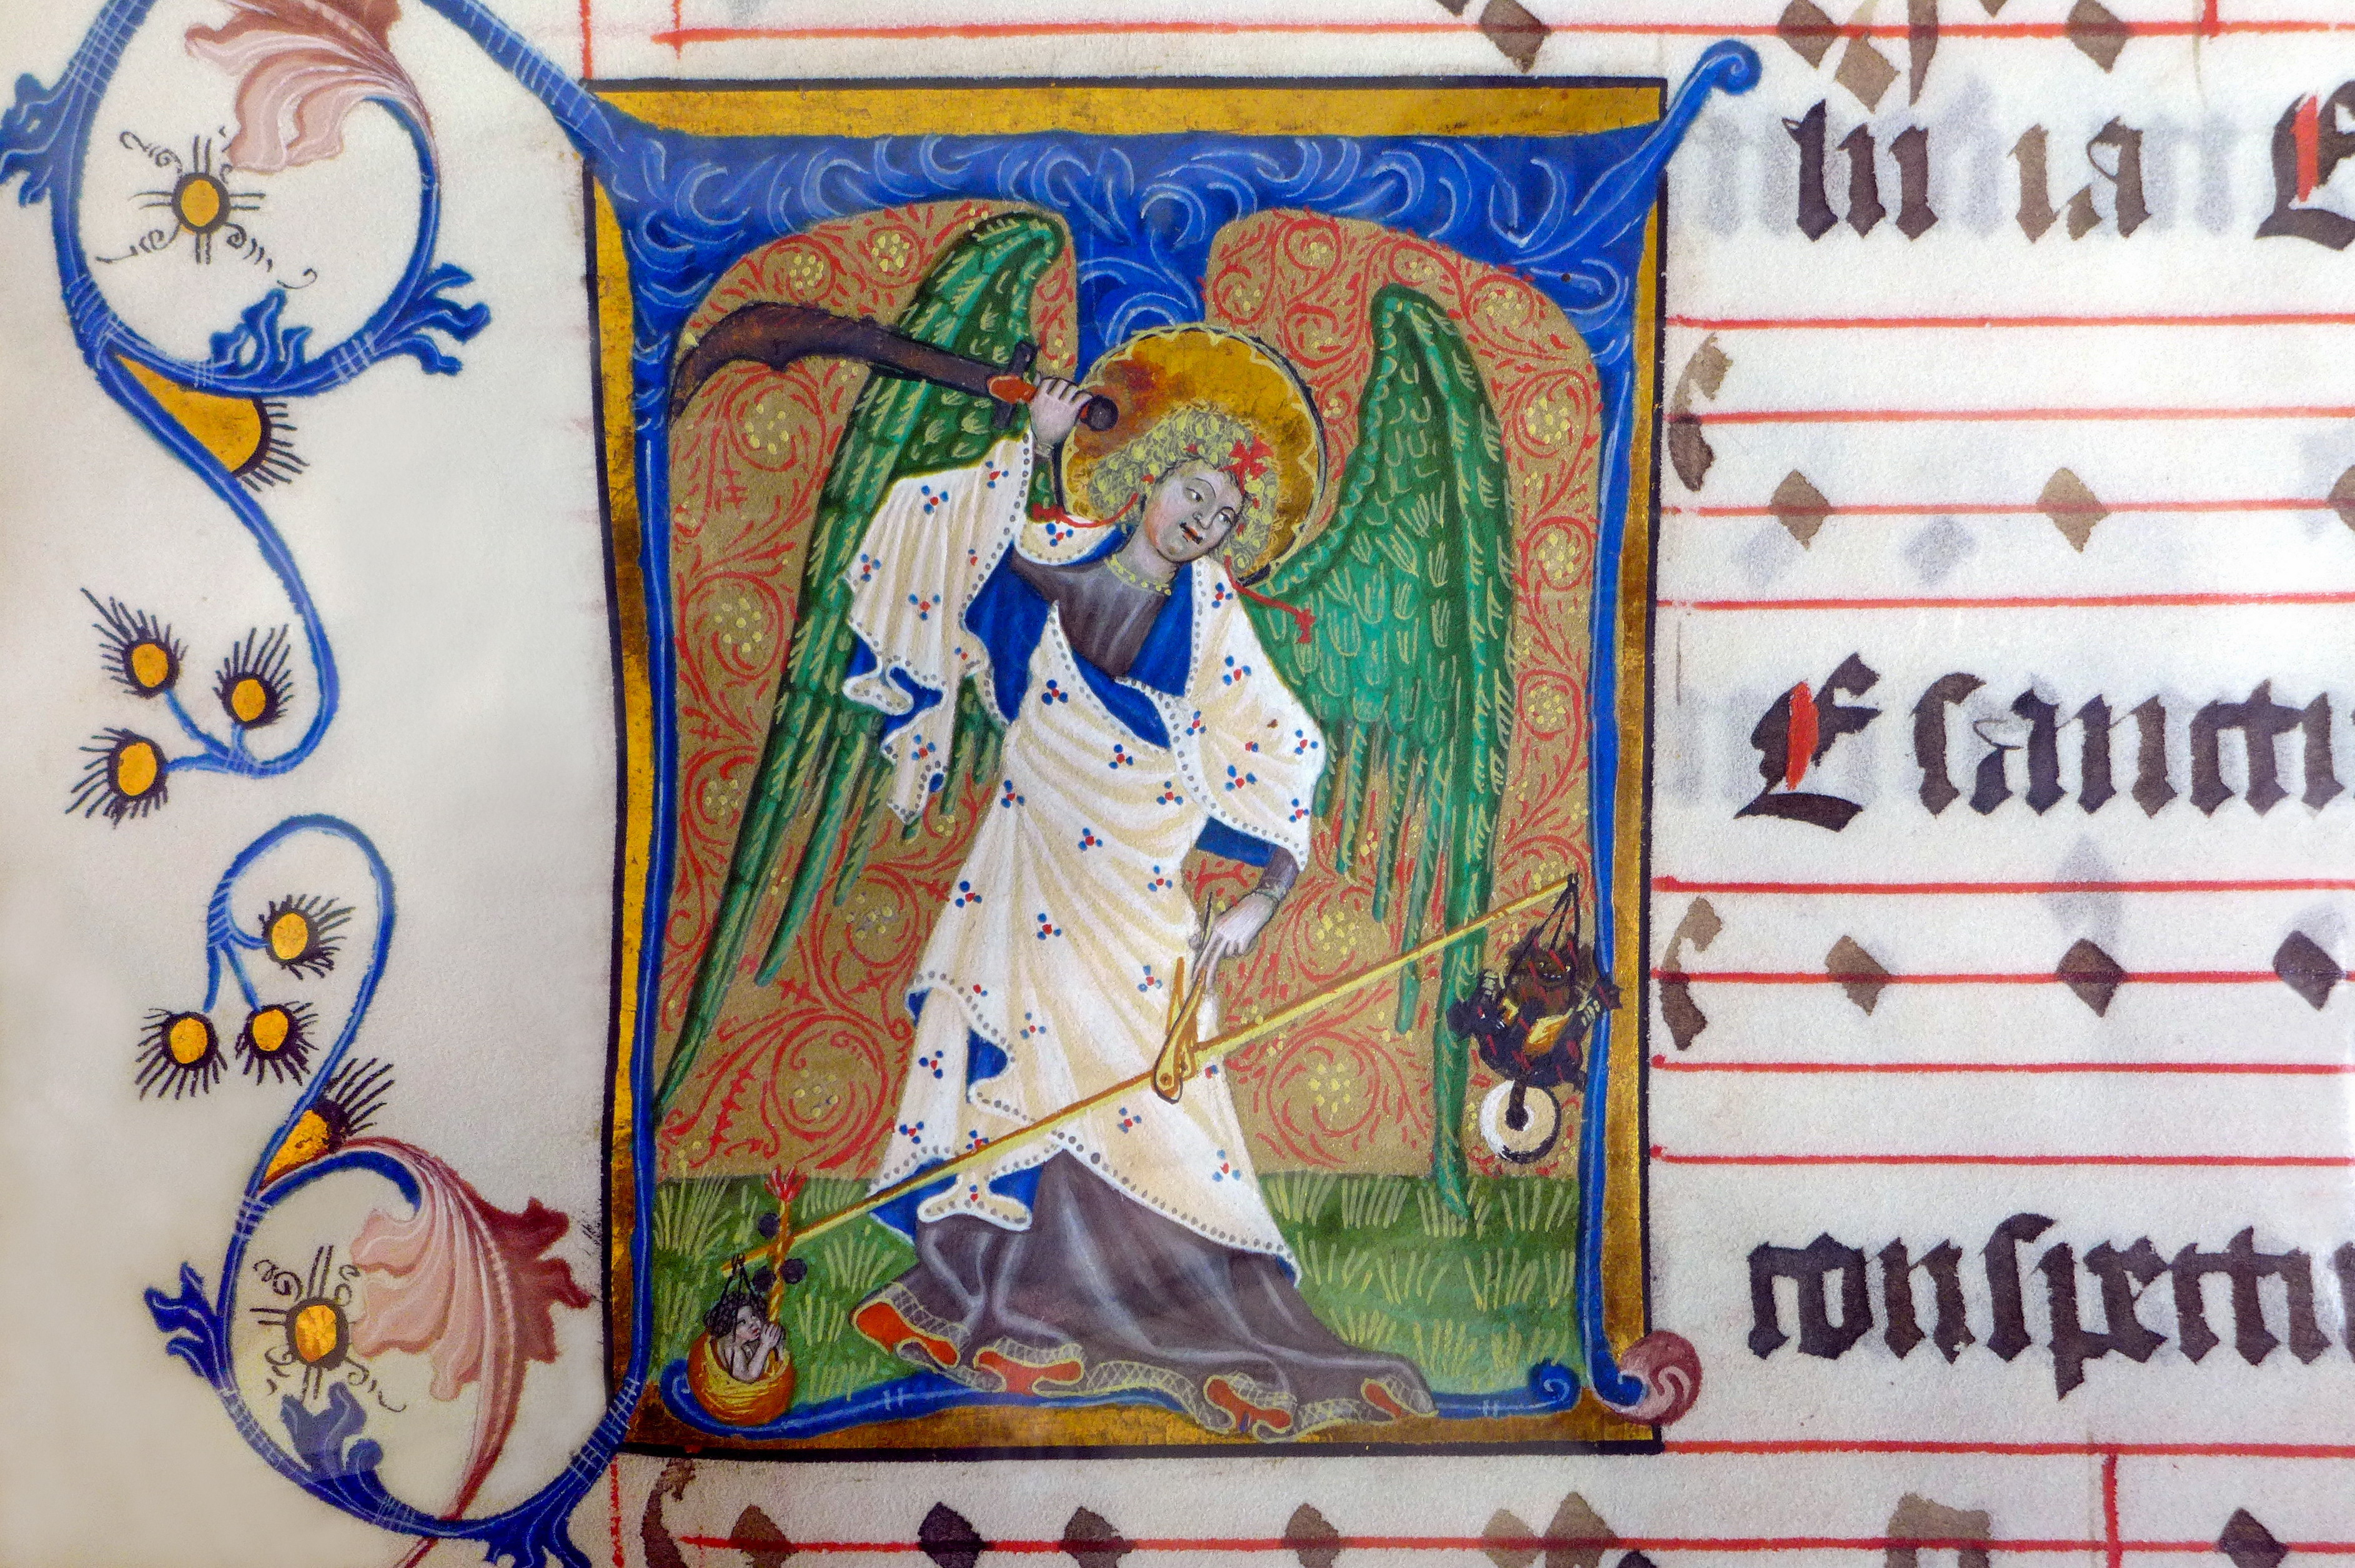 lu ia E
TE sanctu
conspectu